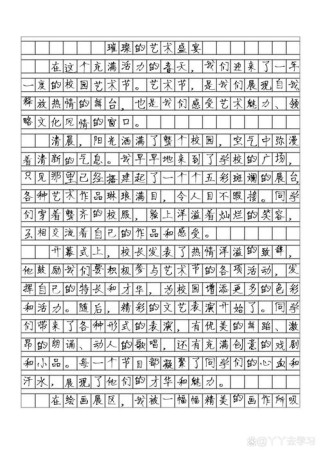 璀璨的艺术盛宴
在这个充满活力的春天，我们迎来了一年
一度的校园艺术节。艺术节，是我们展现自我
释放热情的舞台，也是我们感受艺术魅力、领
略文化风情的窗口。
清晨，阳光洒满了整个校园，空气中弥漫
着清新的气息。我早早地来到了学校的广场，
只见那里已经搭建起了一个个五彩斑斓的展台，
各种艺术作品琳琅满目，令人目不暇接。同学
们穿着整齐的校服，脸上洋溢着灿烂的笑容，
互相交流着自己的作品和感受。
开幕式上，校长发表了热情洋溢的致辞，
他鼓励我们要积极参与艺术节的各项活动，发
挥自己的特长和才华，为校园增添更多的色彩
和活力。随后，精彩的文艺表演开始了。同学
们带来了各种形式的表演，有优美的舞蹈、激
昂的朗诵、动人的歌唱，还有充满创意的戏剧
和小品。每一个节目都凝聚了同学们的心血和
汗水，展现了他们的才华和魅力。
在绘画展区，我被一幅幅精美的画作所吸
@丫丫去学习